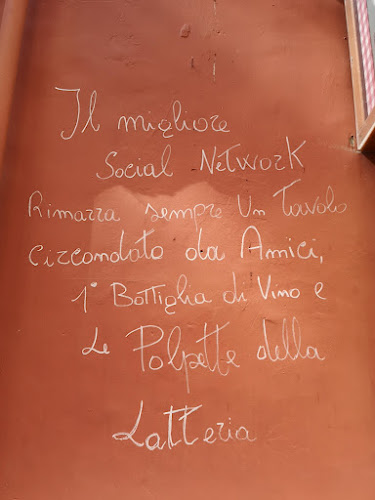 Il migliore
Social Network
Rimarra sempre Un Tavolo
Circondato da Amici,
1° Bottiglia di Vino e
Le Polpette della
Latteria